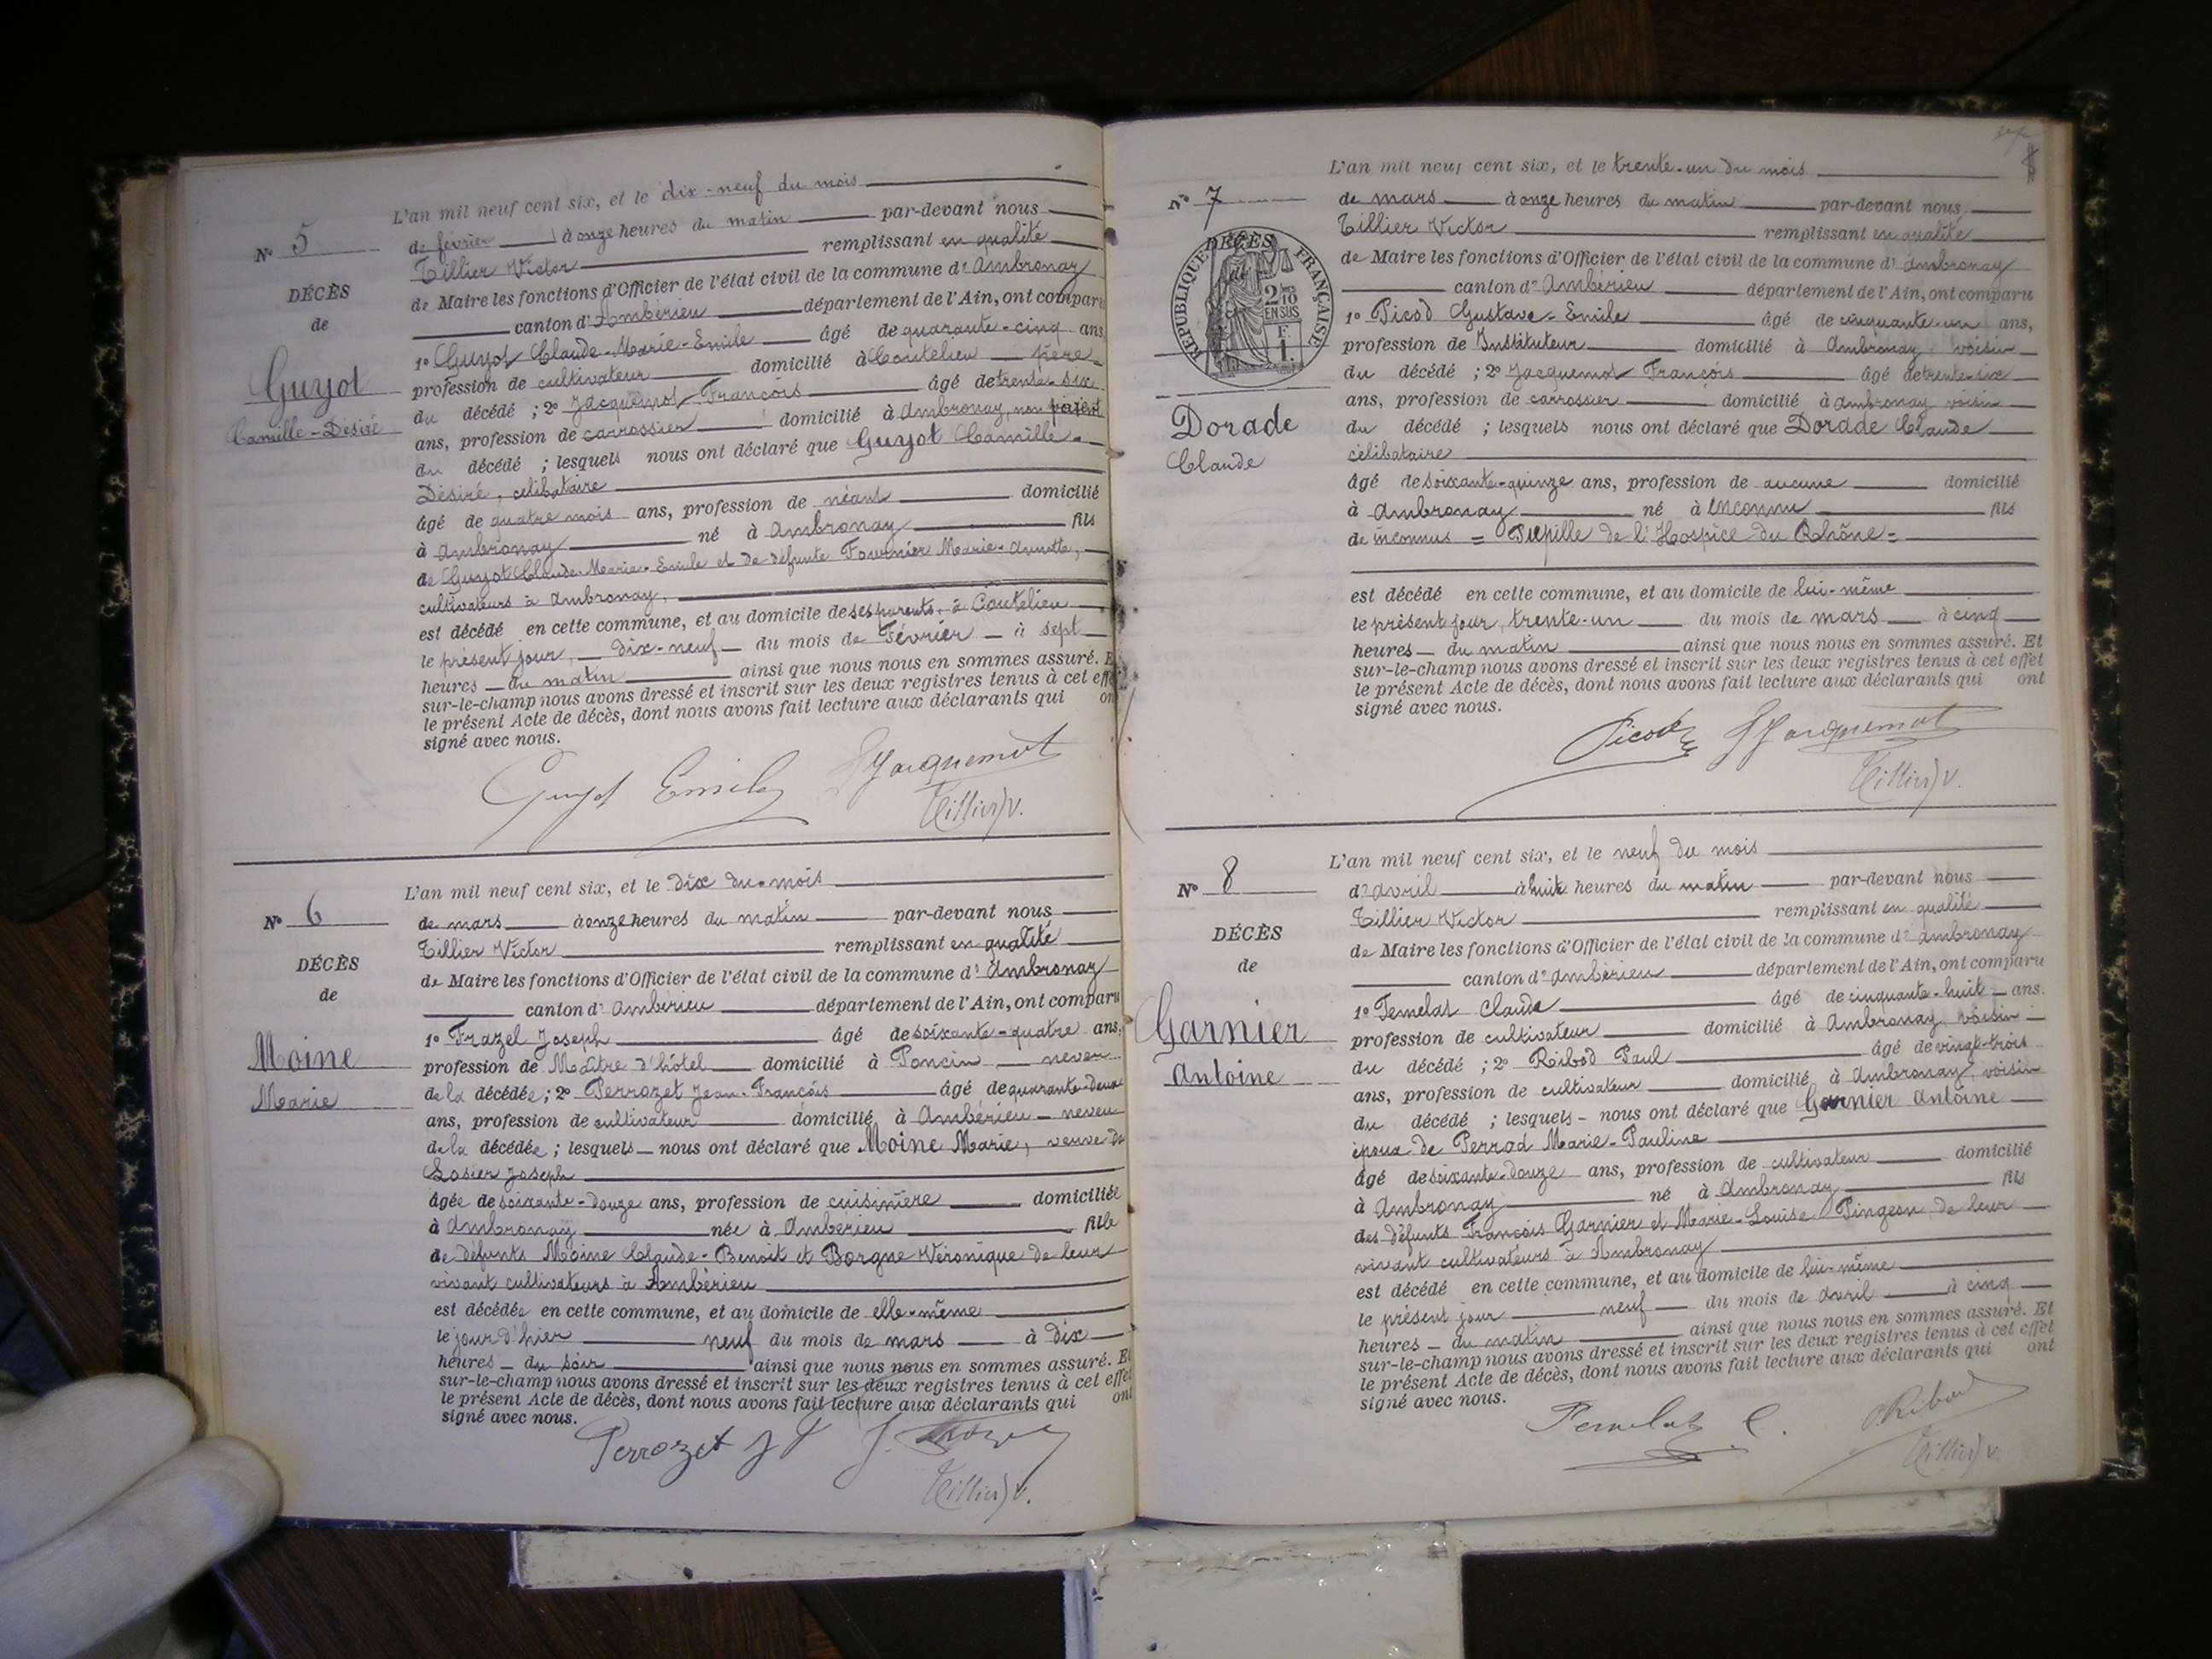 L'an mil neuf cent six, et le dix-neuf du mois
N° 5
de février à onze heures du matin par-devant nous
Tillier Victor remplissant en qualité
DÉCÈS
de Maire les fonctions d'Officier de l'état civil de la commune d' Ambronay
de
canton d' Ambérieu département de l'Ain, ont comparu
1° Guyot Claude-Marie-Emile âgé de quarante-cinq ans
Guyot
profession de cultivateur domicilié à Coutelieu père
Camille-Désiré
du décédé ; 2° Jacquemot François âgé de trente-six
ans, profession de carrossier domicilié à Ambronay, non parent
du décédé ; lesquels nous ont déclaré que Guyot Camille-
Désiré, célibataire
âgé de quatre mois ans, profession de néant domicilié
à Ambronay né à Ambronay fils
de Guyot Claude-Marie-Emile et de défunte Fournier Marie-Annette,
cultivateurs à Ambronay,
est décédé en cette commune, et au domicile de ses parents, à Coutelieu
le présent jour, dix-neuf du mois de Février à sept
heures du matin ainsi que nous nous en sommes assuré. E
sur-le-champ nous avons dressé et inscrit sur les deux registres tenus à cet effe
le présent Acte de décès, dont nous avons fait lecture aux déclarants qui on
signé avec nous.
Guyot Emile Jacquemot
Tillier V.
L'an mil neuf cent six, et le dix du mois
N° 6
de mars à onze heures du matin par-devant nous
Tillier Victor remplissant en qualité
DÉCÈS
de Maire les fonctions d'Officier de l'état civil de la commune d' Ambronay
de
canton d' Ambérieu département de l'Ain, ont comparu
1° Frazel Joseph âgé de soixante-quatre ans,
Moine
profession de Maître d'hôtel domicilié à Poncin neveu
Marie
de la décédée ; 2° Perrozet Jean-François âgé de quarante-deux
ans, profession de cultivateur domicilié à Ambérieu neveu
de la décédée ; lesquels nous ont déclaré que Moine Marie, veuve de
Losier Joseph
âgée de soixante-douze ans, profession de cuisinière domiciliée
à Ambronay née à Ambérieu fille
de défunts Moine Claude-Benoit et Borgne Véronique de leur
vivant cultivateurs à Ambérieu
est décédée en cette commune, et au domicile de elle-même
le jour d'hier neuf du mois de mars à dix
heures du soir ainsi que nous nous en sommes assuré. Et
sur-le-champ nous avons dressé et inscrit sur les deux registres tenus à cet effet
le présent Acte de décès, dont nous avons fait lecture aux déclarants qui ont
signé avec nous.
Perrozet J F
Tillier V.
L'an mil neuf cent six, et le trente-un du mois
N° 7
de mars à onze heures du matin par-devant nous
Tillier Victor remplissant en qualité
DÉCÈS
RÉPUBLIQUE FRANÇAISE
2 10 EN SUS
F 1.
de Maire les fonctions d'Officier de l'état civil de la commune d' Ambronay
canton d' Ambérieu département de l'Ain, ont comparu
1° Picod Gustave-Emile âgé de cinquante-un ans,
profession de Instituteur domicilié à Ambronay, voisin
du décédé ; 2° Jacquemot François âgé de trente-six
ans, profession de carrossier domicilié à Ambronay voisin
Dorade
du décédé ; lesquels nous ont déclaré que Dorade Claude
Claude
célibataire
âgé de soixante-quinze ans, profession de aucune domicilié
à Ambronay né à inconnu fils
de inconnus = Pupille de l'Hospice du Rhône =
est décédé en cette commune, et au domicile de lui-même
le présent jour, trente-un du mois de mars à cinq
heures du matin ainsi que nous nous en sommes assuré. Et
sur-le-champ nous avons dressé et inscrit sur les deux registres tenus à cet effet
le présent Acte de décès, dont nous avons fait lecture aux déclarants qui ont
signé avec nous.
Picod Jacquemot
Tillier V.
L'an mil neuf cent six, et le neuf du mois
N° 8
d' avril à huit heures du matin par-devant nous
Tillier Victor remplissant en qualité
DÉCÈS
de Maire les fonctions d'Officier de l'état civil de la commune d' Ambronay
de
canton d' Ambérieu département de l'Ain, ont comparu
1° Temelat Claude âgé de cinquante-huit ans.
Garnier
profession de cultivateur domicilié à Ambronay voisin
Antoine
du décédé ; 2° Ribod Paul âgé de vingt-trois
ans, profession de cultivateur domicilié à Ambronay, voisin
du décédé ; lesquels nous ont déclaré que Garnier Antoine
époux de Perrod Marie-Pauline
âgé de soixante-douze ans, profession de cultivateur domicilié
à Ambronay né à Ambronay fils
des défunts François Garnier et Marie-Louise Pingeon de leur
vivant cultivateurs à Ambronay
est décédé en cette commune, et au domicile de lui-même
le présent jour neuf du mois de avril à cinq
heures du matin ainsi que nous nous en sommes assuré. Et
sur-le-champ nous avons dressé et inscrit sur les deux registres tenus à cet effet
le présent Acte de décès, dont nous avons fait lecture aux déclarants qui ont
signé avec nous.
Temelat C. P. Ribod
Tillier V.